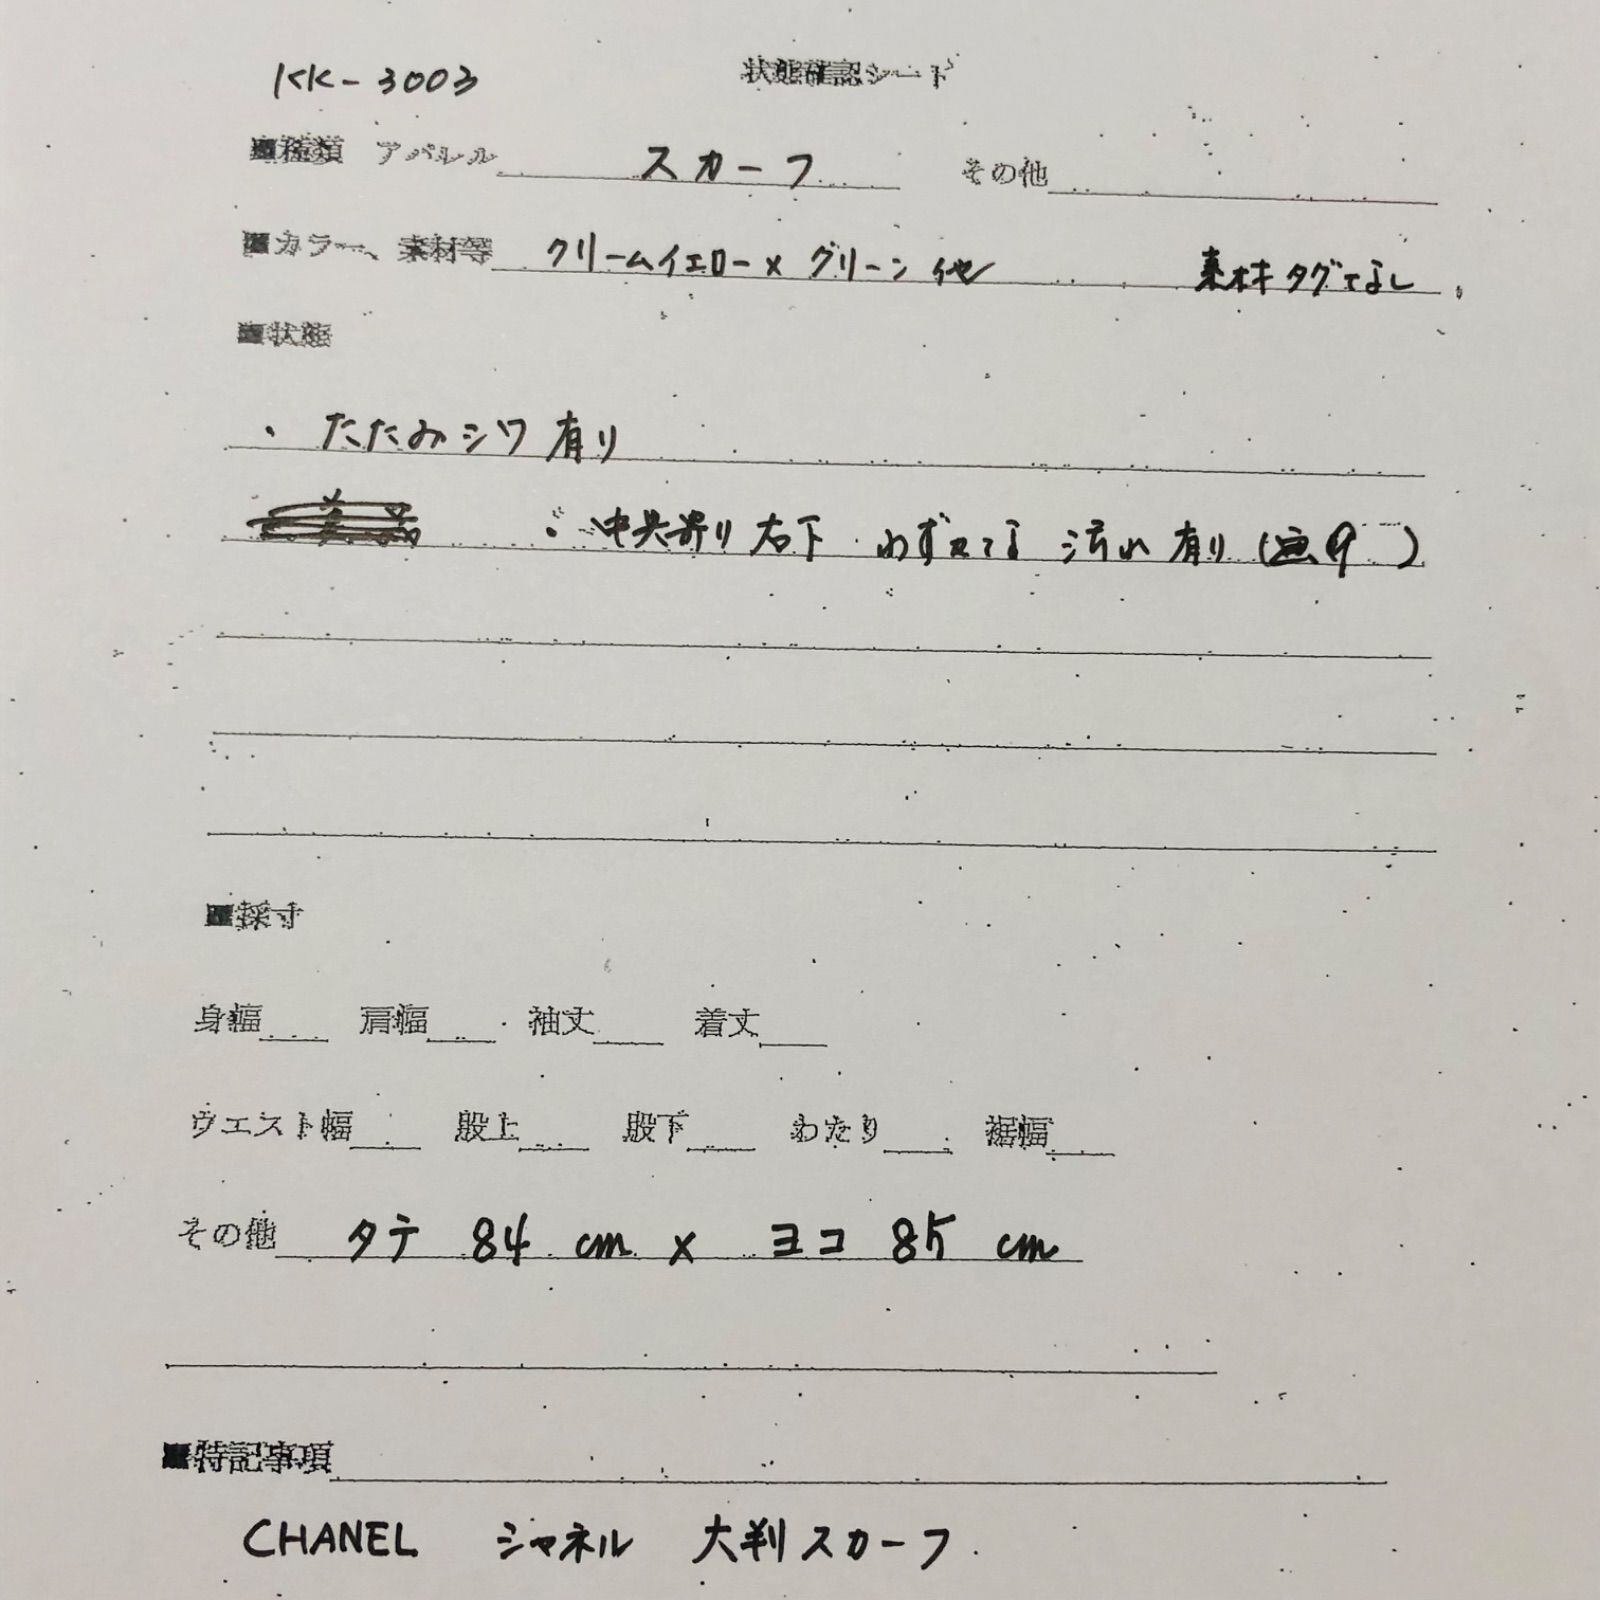 KK-3003 状態確認シート
■種類 アパレル スカーフ その他
■カラー、素材等 クリームイエロー×グリーン他 素材タグなし
■状態
・たたみシワ有り
・中央寄り右下 わずかな 流れ 有り(画9)
■採寸
身幅 肩幅 袖丈 着丈
ウエスト幅 股上 股下 わたり 裾幅
その他 タテ 84 cm × ヨコ 85 cm
■特記事項
CHANEL シャネル 大判スカーフ